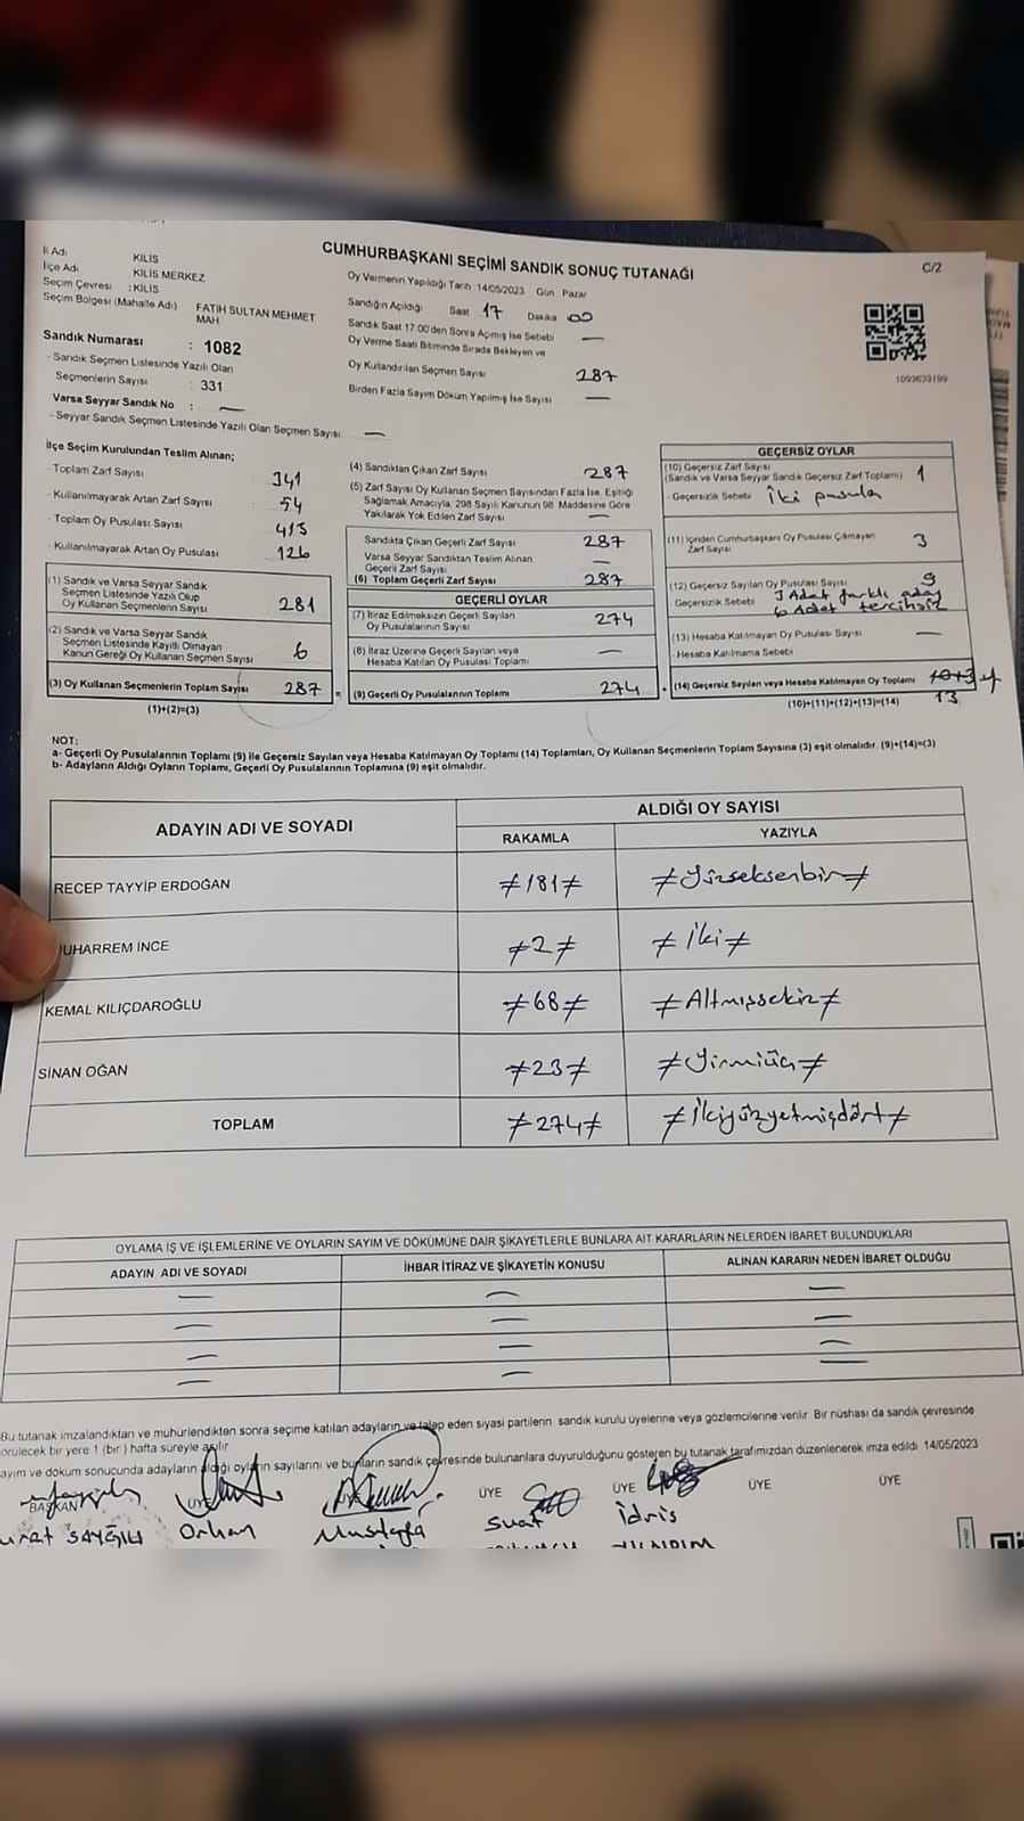 CUMHURBAŞKANI SEÇİMİ SANDIK SONUÇ TUTANAĞI
C/2
İl Adı KİLİS
İlçe Adı KİLİS MERKEZ
Seçim Çevresi : KİLİS
Seçim Bölgesi (Mahalle Adı) FATİH SULTAN MEHMET
MAH
Sandık Numarası : 1082
- Sandık Seçmen Listesinde Yazılı Olan
Seçmenlerin Sayısı : 331
Varsa Seyyar Sandık No : —
- Seyyar Sandık Seçmen Listesinde Yazılı Olan Seçmen Sayısı —
Oy Vermenin Yapıldığı Tarih 14/05/2023 Gün Pazar
Sandığın Açıldığı Saat 17 Dakika 00
Sandık Saat 17.00'den Sonra Açılmış İse Sebebi —
Oy Verme Saati Bitiminde Sırada Bekleyen ve
Oy Kullandırılan Seçmen Sayısı 287
Birden Fazla Sayım Döküm Yapılmış İse Sayısı —
1093633199
İlçe Seçim Kurulundan Teslim Alınan;
- Toplam Zarf Sayısı 341
- Kullanılmayarak Artan Zarf Sayısı 54
- Toplam Oy Pusulası Sayısı 413
- Kullanılmayarak Artan Oy Pusulası 126
(1) Sandık ve Varsa Seyyar Sandık
Seçmen Listesinde Yazılı Olup
Oy Kullanan Seçmenlerin Sayısı 281
(2) Sandık ve Varsa Seyyar Sandık
Seçmen Listesinde Kayıtlı Olmayan
Kanun Gereği Oy Kullanan Seçmen Sayısı 6
(3) Oy Kullanan Seçmenlerin Toplam Sayısı 287
(1)+(2)=(3)
(4) Sandıktan Çıkan Zarf Sayısı 287
(5) Zarf Sayısı Oy Kullanan Seçmen Sayısından Fazla İse, Eşitliği
Sağlamak Amacıyla, 298 Sayılı Kanunun 98. Maddesine Göre
Yakılarak Yok Edilen Zarf Sayısı —
Sandıkta Çıkan Geçerli Zarf Sayısı 287
Varsa Seyyar Sandıktan Teslim Alınan
Geçerli Zarf Sayısı —
(6) Toplam Geçerli Zarf Sayısı 287
GEÇERLİ OYLAR
(7) İtiraz Edilmeksizin Geçerli Sayılan
Oy Pusulalarının Sayısı 274
(8) İtiraz Üzerine Geçerli Sayılan veya
Hesaba Katılan Oy Pusulası Toplamı —
(9) Geçerli Oy Pusulalarının Toplamı 274
GEÇERSİZ OYLAR
(10) Geçersiz Zarf Sayısı
(Sandık ve Varsa Seyyar Sandık Geçersiz Zarf Toplamı) 1
- Geçersizlik Sebebi İki pusula
(11) İçinden Cumhurbaşkanı Oy Pusulası Çıkmayan
Zarf Sayısı 3
(12) Geçersiz Sayılan Oy Pusulası Sayısı 9
Geçersizlik Sebebi 3 Adet farklı aday
6 Adet tercihsiz
(13) Hesaba Katılmayan Oy Pusulası Sayısı —
- Hesaba Katılmama Sebebi
(14) Geçersiz Sayılan veya Hesaba Katılmayan Oy Toplamı
13
(10)+(11)+(12)+(13)=(14)
NOT:
a- Geçerli Oy Pusulalarının Toplamı (9) ile Geçersiz Sayılan veya Hesaba Katılmayan Oy Toplamı (14) Toplamları, Oy Kullanan Seçmenlerin Toplam Sayısına (3) eşit olmalıdır. (9)+(14)=(3)
b- Adayların Aldığı Oyların Toplamı, Geçerli Oy Pusulalarının Toplamına (9) eşit olmalıdır.
ADAYIN ADI VE SOYADI
ALDIĞI OY SAYISI
RAKAMLA YAZIYLA
RECEP TAYYİP ERDOĞAN ≠181≠ ≠Yüzseksenbir≠
MUHARREM İNCE ≠2≠ ≠İki≠
KEMAL KILIÇDAROĞLU ≠68≠ ≠Altmışsekiz≠
SİNAN OĞAN ≠23≠ ≠Yirmiüç≠
TOPLAM ≠274≠ ≠İkiyüzyetmişdört≠
OYLAMA İŞ VE İŞLEMLERİNE VE OYLARIN SAYIM VE DÖKÜMÜNE DAİR ŞİKAYETLERLE BUNLARA AİT KARARLARIN NELERDEN İBARET BULUNDUKLARI
ADAYIN ADI VE SOYADI İHBAR İTİRAZ VE ŞİKAYETİN KONUSU ALINAN KARARIN NEDEN İBARET OLDUĞU
— — —
— — —
— — —
— — —
Bu tutanak imzalandıktan ve mühürlendikten sonra seçime katılan adayların ve talep eden siyasi partilerin sandık kurulu üyelerine veya gözlemcilerine verilir. Bir nüshası da sandık çevresinde
görülecek bir yere 1 (bir) hafta süreyle asılır
ayım ve döküm sonucunda adayların aldığı oyların sayılarını ve bunların sandık çevresinde bulunanlara duyurulduğunu gösteren bu tutanak tarafımızdan düzenlenerek imza edildi. 14/05/2023
BAŞKAN ÜYE ÜYE ÜYE ÜYE ÜYE
urat SAYGILI Orhan Mustafa Suat İdris
YILDIRIM